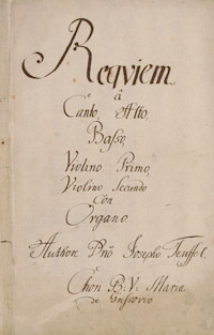 Reqviem
â
Canto, Alto
Basso,
Violino Primo,
Violino Secundo
Con
Organo
Authore Dño Josepho Teuffel.
Chori B: V: Mariæ